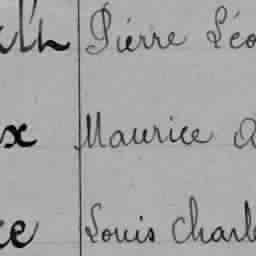 Pierre Léo
x Maurice
ce Louis Charl